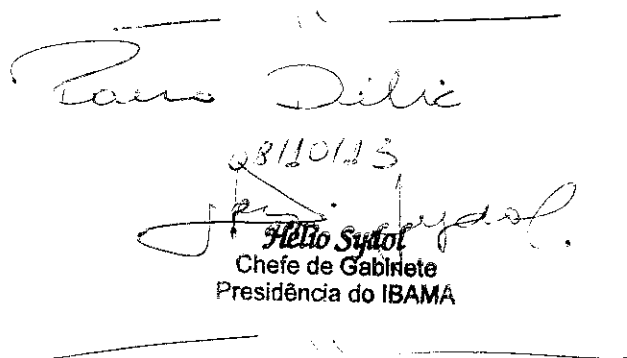 Para Dilic
08/10/13
Hélio Sydol
Chefe de Gabinete
Presidência do IBAMA